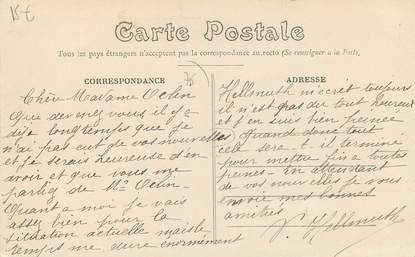 15 €
Carte Postale
Tous les pays étrangers n'acceptent pas la correspondance au recto (Se renseigner à la Poste)
CORRESPONDANCE
75
Chère Madame Oclin
Que devenez vous il y a
déjà longtemps que je
n'ai pas eut de vos nouvelles
et je serais heureuse d'en
avoir et que vous me
parliez de Mr Oclin.
Quant a moi je vais
assez bien pour la
situation actuelle mais le
temps me dure enormément
ADRESSE
Hellmuth m'ecrit toujours
il n'est pas du tout heureux
et j'en suis bien peinée
Quand donc tout
cela sera-t-il terminé
pour mettre fin a toutes
peines - En attendant
de vos nouvelles je vous
envoie mes bonnes
amitiés
Hellmuth